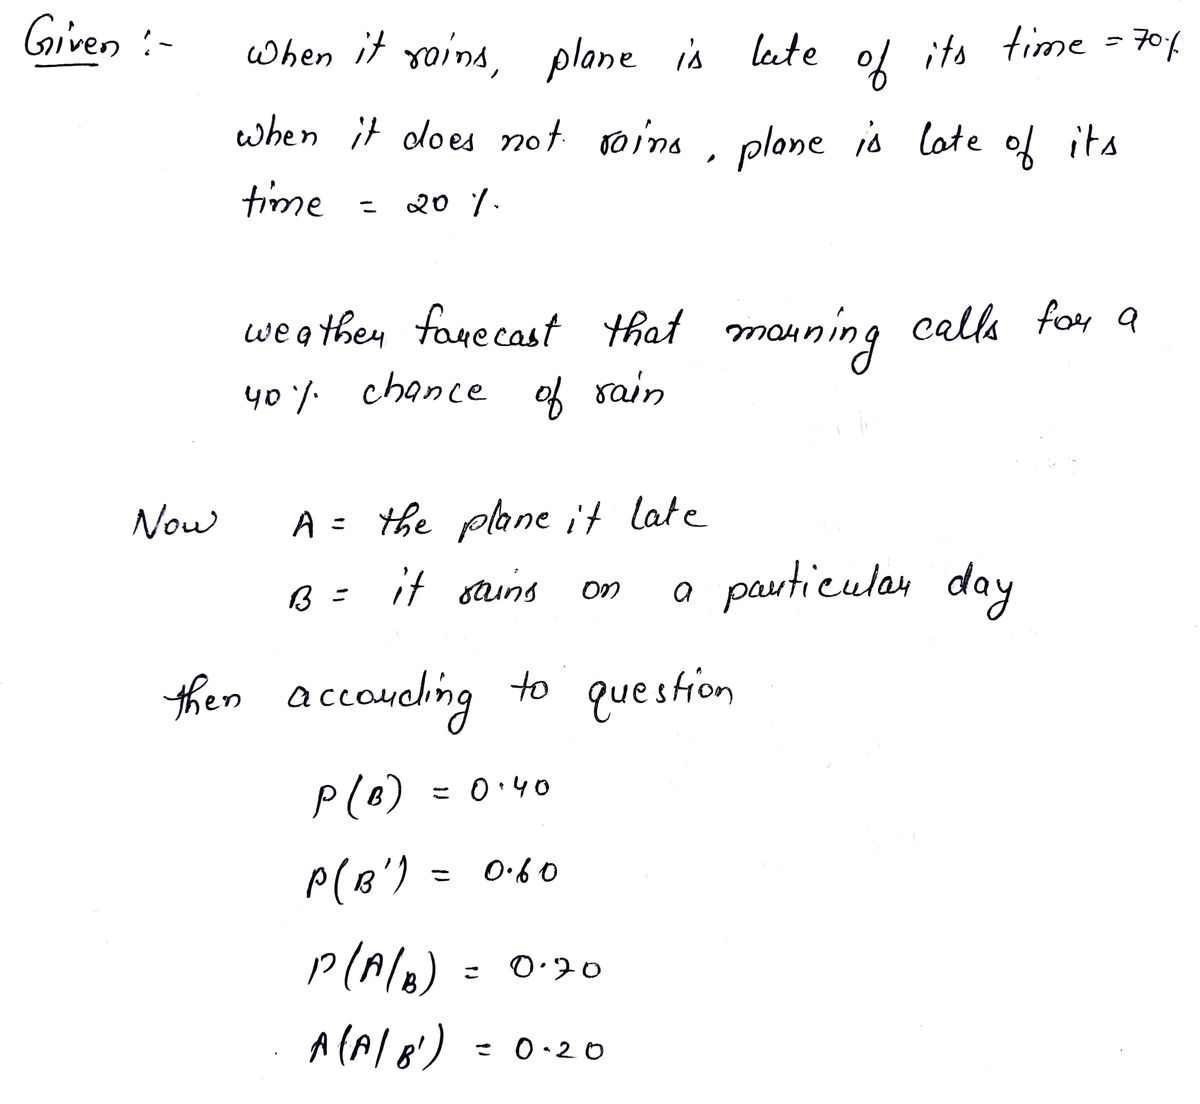 Given :- when it rains, plane is late of its time = 70%
when it does not rains, plane is late of its
time = 20 %.
weather forecast that morning calls for a
40 %. chance of rain
Now A = the plane it late
B = it rains on a particular day
then according to question
P(B) = 0.40
P(B') = 0.60
P(A/B) = 0.70
A(A/B') = 0.20